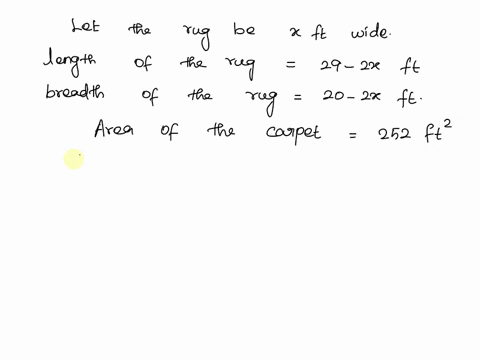 Let the rug be x ft wide.
length of the rug = 29 - 2x ft
breadth of the rug = 20 - 2x ft.
Area of the carpet = 252 ft²